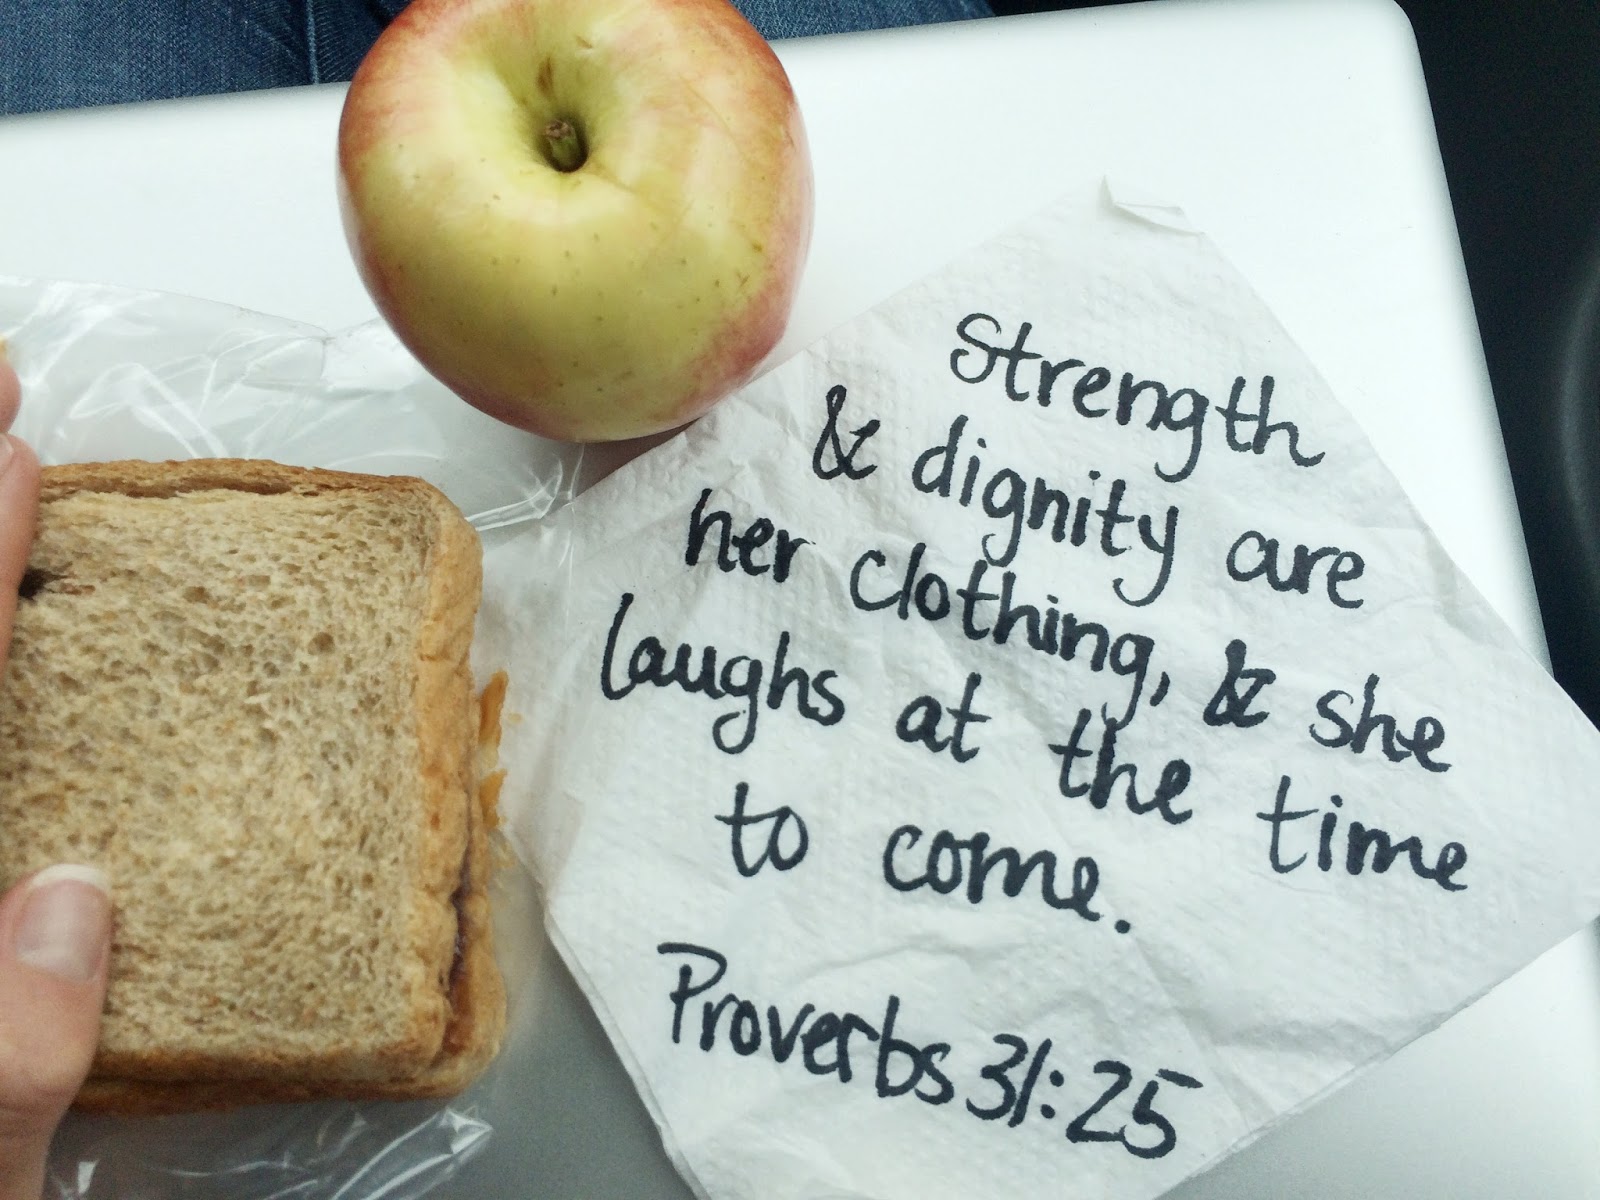 Strength
& dignity are
her clothing, & she
laughs at the time
to come.
Proverbs 31:25